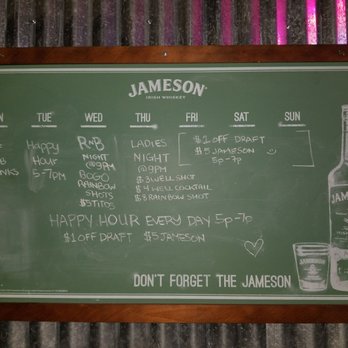 JAMESON
IRISH WHISKEY
TUE WED THU FRI SAT SUN
Happy
Hour
5-7pm
RnB
NIGHT
@9PM
BOGO
RAINBOW
SHOTS
$5 TITOS
LADIES
NIGHT
@9PM
$3 WELL SHOT
$4 WELL COCKTAIL
$8 RAINBOW SHOT
$1 OFF DRAFT
$5 JAMESON
5p-7p
HAPPY HOUR EVERY DAY 5p-7p
$1 OFF DRAFT $5 JAMESON
DON'T FORGET THE JAMESON
JAMESON